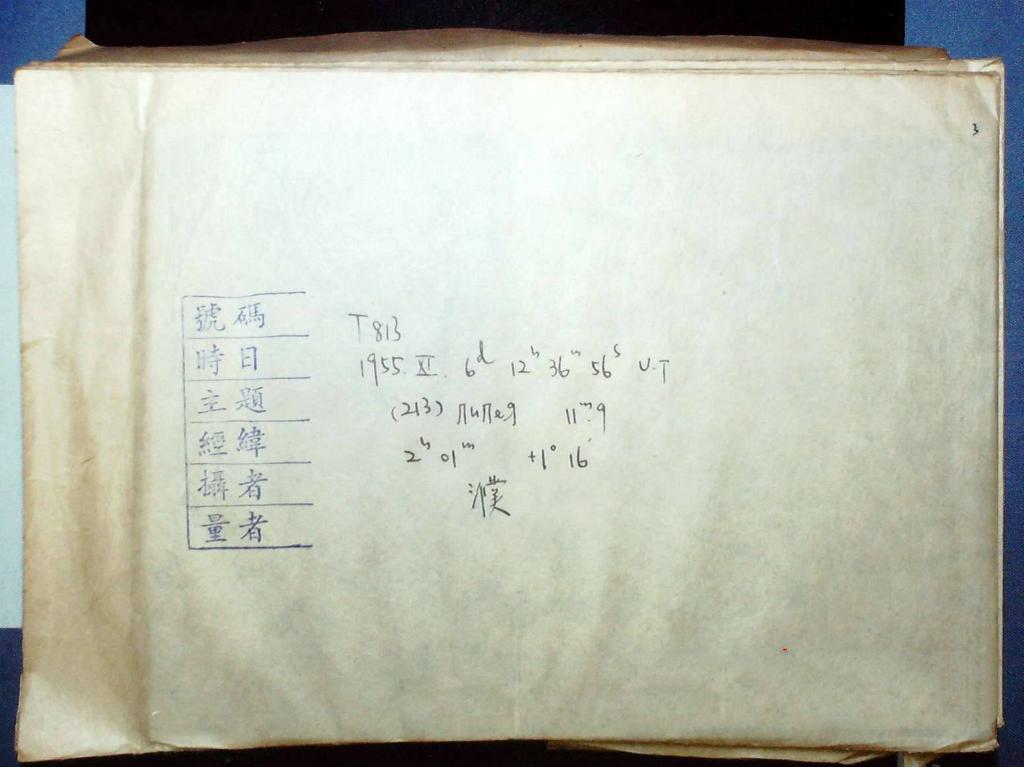 3
號碼 T813
時日 1955. XI. 6ᵈ 12ʰ 36ᵐ 56ˢ U.T
主題 (213) Лилея 11ᵐ.9
經緯 2ʰ 01ᵐ +1° 16′
攝者 濮
量者